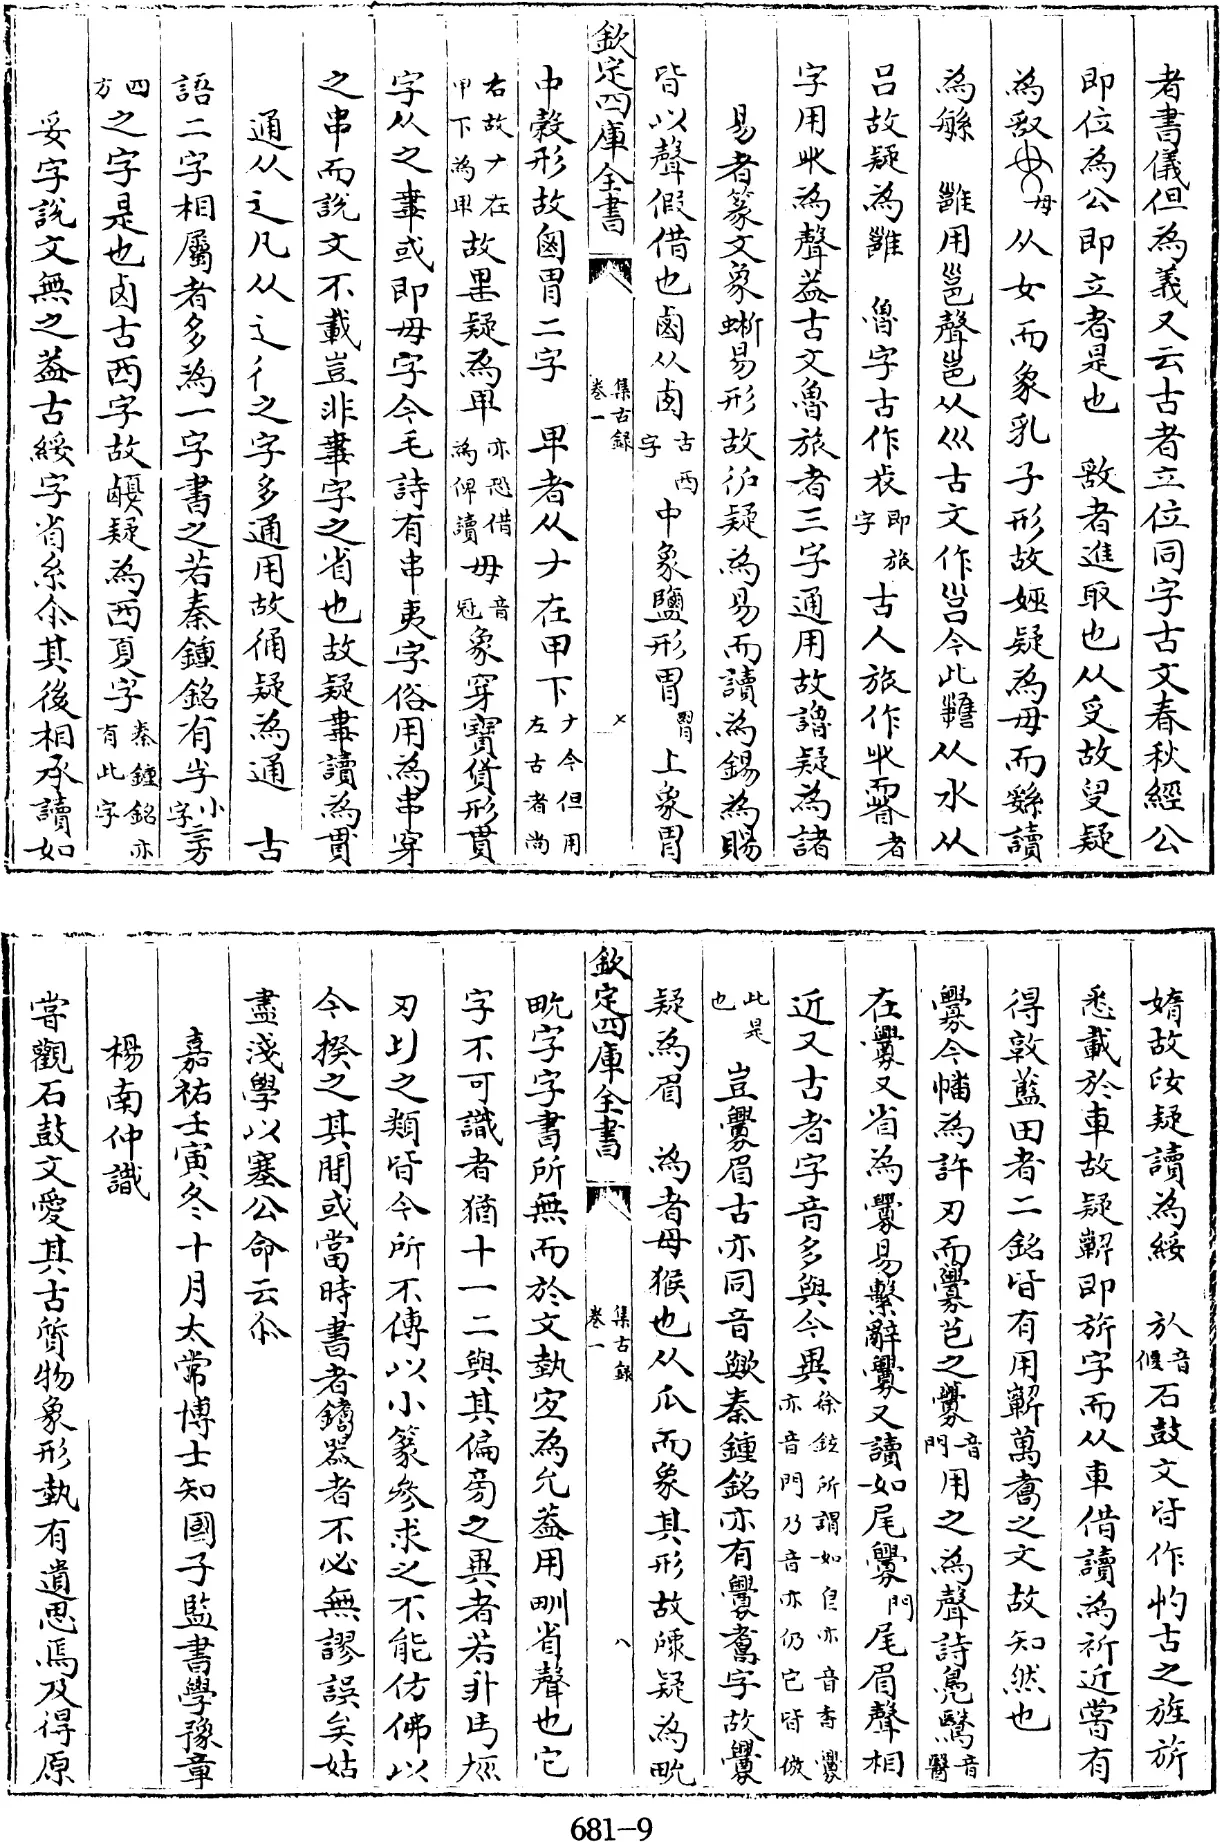 者書儀但為義又云古者立位同字古文春秋經公
即位為公即立者是也　敢者進取也从受故𠬪疑
為敢　母从女而象乳子形故娅疑為母而繇讀
為繇　雝用邕聲邕从巛古文作邕今此雝从水从
吕故疑為雝　魯字古作炭即旅字古人旅作㫺者
字用㫺為聲葢古文魯旅者三字通用故譮疑為諸
易者篆文象蜥易形故疑為易而讀為錫為賜
皆以聲假借也鹵从卤古西字中象鹽形胃上象胃
欽定四庫全書
集古録
卷一
七
中穀形故圅胃二字　畀者从𠂇在甲下𠂇今但用左古者尚
右故𠂇在甲下為畀故畀疑為畀亦恐借為俾讀毋音冠象穿寶貨形貫
字从之𦘔或即毋字今毛詩有串夷字俗用為串穿
之串而說文不載豈非𦘔字之省也故疑𦘔讀為貫
通从辶凡从辶彳之字多通用故俑疑為通　古
語二字相屬者多為一字書之若秦鍾銘有小字四
方之字是也卤古西字故疑為西夏字秦鍾銘亦有此字
妥字說文無之葢古綏字省糸尒其後相承讀如
媠故疑讀為綏　㫃音偃石鼓文皆作㫃古之旌旂
悉載於車故疑旂即旂字而从車借讀為祈近嘗有
得敦藍田者二銘皆有用旂萬壽之文故知然也
釁今幡為許刃而釁芑之釁音門用之為聲詩鳧鷖音毉
在亹又省為亹易繫辭亹又讀如尾亹門尾眉聲相
近又古者字音多與今異徐鉉所謂如皀亦音香釁亦音門乃音亦仍它皆倣
此是也豈釁眉古亦同音歟秦鍾銘亦有釁壽字故釁
疑為眉　為者母猴也从爪而象其形故疑為𤰕
欽定四庫全書
集古録
卷一
八
𤰕字字書所無而於文埶宜為允葢用甽省聲也它
字不可識者猶十一二與其偏旁之異者若
刃之類皆今所不傳以小篆參求之不能仿佛以
今揆之其間或當時書者鑄器者不必無謬誤矣姑
盡淺學以塞公命云尒
嘉祐壬寅冬十月太常博士知國子監書學豫章
楊南仲識
嘗觀石鼓文愛其古質物象形埶有遺思焉及得原
681-9